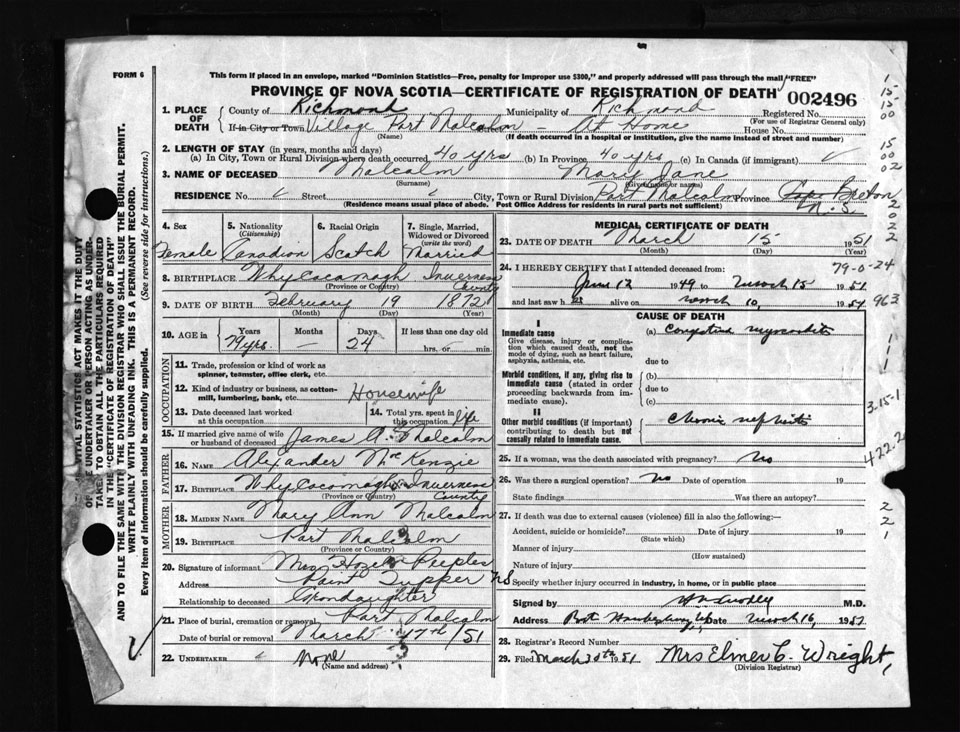 FORM 6
This form if placed in an envelope, marked "Dominion Statistics—Free, penalty for improper use $300," and properly addressed will pass through the mail "FREE"
PROVINCE OF NOVA SCOTIA—CERTIFICATE OF REGISTRATION OF DEATH
002496
1. PLACE OF DEATH
County of Richmond Municipality of Richmond Registered No.
(For use of Registrar General only)
If in City or Town Village Port Malcolm At Home House No.
(Name) (If death occurred in a hospital or institution, give the name instead of street and number)
2. LENGTH OF STAY (in years, months and days)
(a) In City, Town or Rural Division where death occurred 40 yrs (b) In Province 40 yrs (c) In Canada (if immigrant)
3. NAME OF DECEASED Malcolm Mary Jane
(Surname) (Given name or names)
RESIDENCE No. Street City, Town or Rural Division Port Malcolm Province Cape Breton N.S.
(Residence means usual place of abode. Post Office Address for residents in rural parts not sufficient)
4. Sex 5. Nationality (Citizenship) 6. Racial Origin 7. Single, Married, Widowed or Divorced (write the word)
Female Canadian Scotch Married
8. BIRTHPLACE Whycocomagh Inverness County
(Province or Country)
9. DATE OF BIRTH February 19 1872
(Month) (Day) (Year)
10. AGE in Years Months Days If less than one day old
79 yrs. — 24 hrs. or min.
OCCUPATION
11. Trade, profession or kind of work as
spinner, teamster, office clerk, etc.
12. Kind of industry or business, as cotton-
mill, lumbering, bank, etc. Housewife
13. Date deceased last worked at this occupation
14. Total yrs. spent in this occupation life
15. If married give name of wife or husband of deceased James A. Malcolm
FATHER
16. NAME Alexander McKenzie
17. BIRTHPLACE Whycocomagh Inverness County
(Province or Country)
MOTHER
18. MAIDEN NAME Mary Ann Malcolm
19. BIRTHPLACE Port Malcolm
(Province or Country)
20. Signature of informant Mrs Hazel Peeples
Address Point Tupper NS
Relationship to deceased Grondaughter
21. Place of burial, cremation or removal Port Malcolm
Date of burial or removal March 17th /51
22. UNDERTAKER None
(Name and address)
MEDICAL CERTIFICATE OF DEATH
23. DATE OF DEATH March 15 1951
(Month) (Day) (Year)
24. I HEREBY CERTIFY that I attended deceased from: 79-0-24
June 12 1949 to March 15 1951
and last saw h er alive on March 10, 1951 963
CAUSE OF DEATH
I
Immediate cause (a) myocarditis
Give disease, injury or complication which caused death, not the mode of dying, such as heart failure, asphyxia, asthenia, etc.
due to
Morbid conditions, if any, giving rise to immediate cause (stated in order proceeding backwards from immediate cause).
(b)
due to
(c)
II
Other morbid conditions (if important) contributing to death but not causally related to immediate cause.
chronic nephritis
3.15-1
422.2
25. If a woman, was the death associated with pregnancy? No
26. Was there a surgical operation? No Date of operation 19
State findings Was there an autopsy?
27. If death was due to external causes (violence) fill in also the following:—
Accident, suicide or homicide? Date of injury 19
(State which)
Manner of injury
(How sustained)
Nature of injury
Specify whether injury occurred in industry, in home, or in public place
Signed by M.D.
Address Port Hawkesbury Date March 16, 1951
28. Registrar's Record Number
29. Filed March 30th 1951 Mrs Elmer C. Wright,
(Division Registrar)
VITAL STATISTICS ACT MAKES IT THE DUTY
OF THE UNDERTAKER OR PERSON ACTING AS UNDER-
TAKER TO OBTAIN ALL THE PARTICULARS REQUIRED
IN THE "CERTIFICATE OF REGISTRATION OF DEATH"
AND TO FILE THE SAME WITH THE DIVISION REGISTRAR WHO SHALL ISSUE THE BURIAL PERMIT.
WRITE PLAINLY WITH UNFADING INK. THIS IS A PERMANENT RECORD.
Every item of information should be carefully supplied. (See reverse side for instructions.)